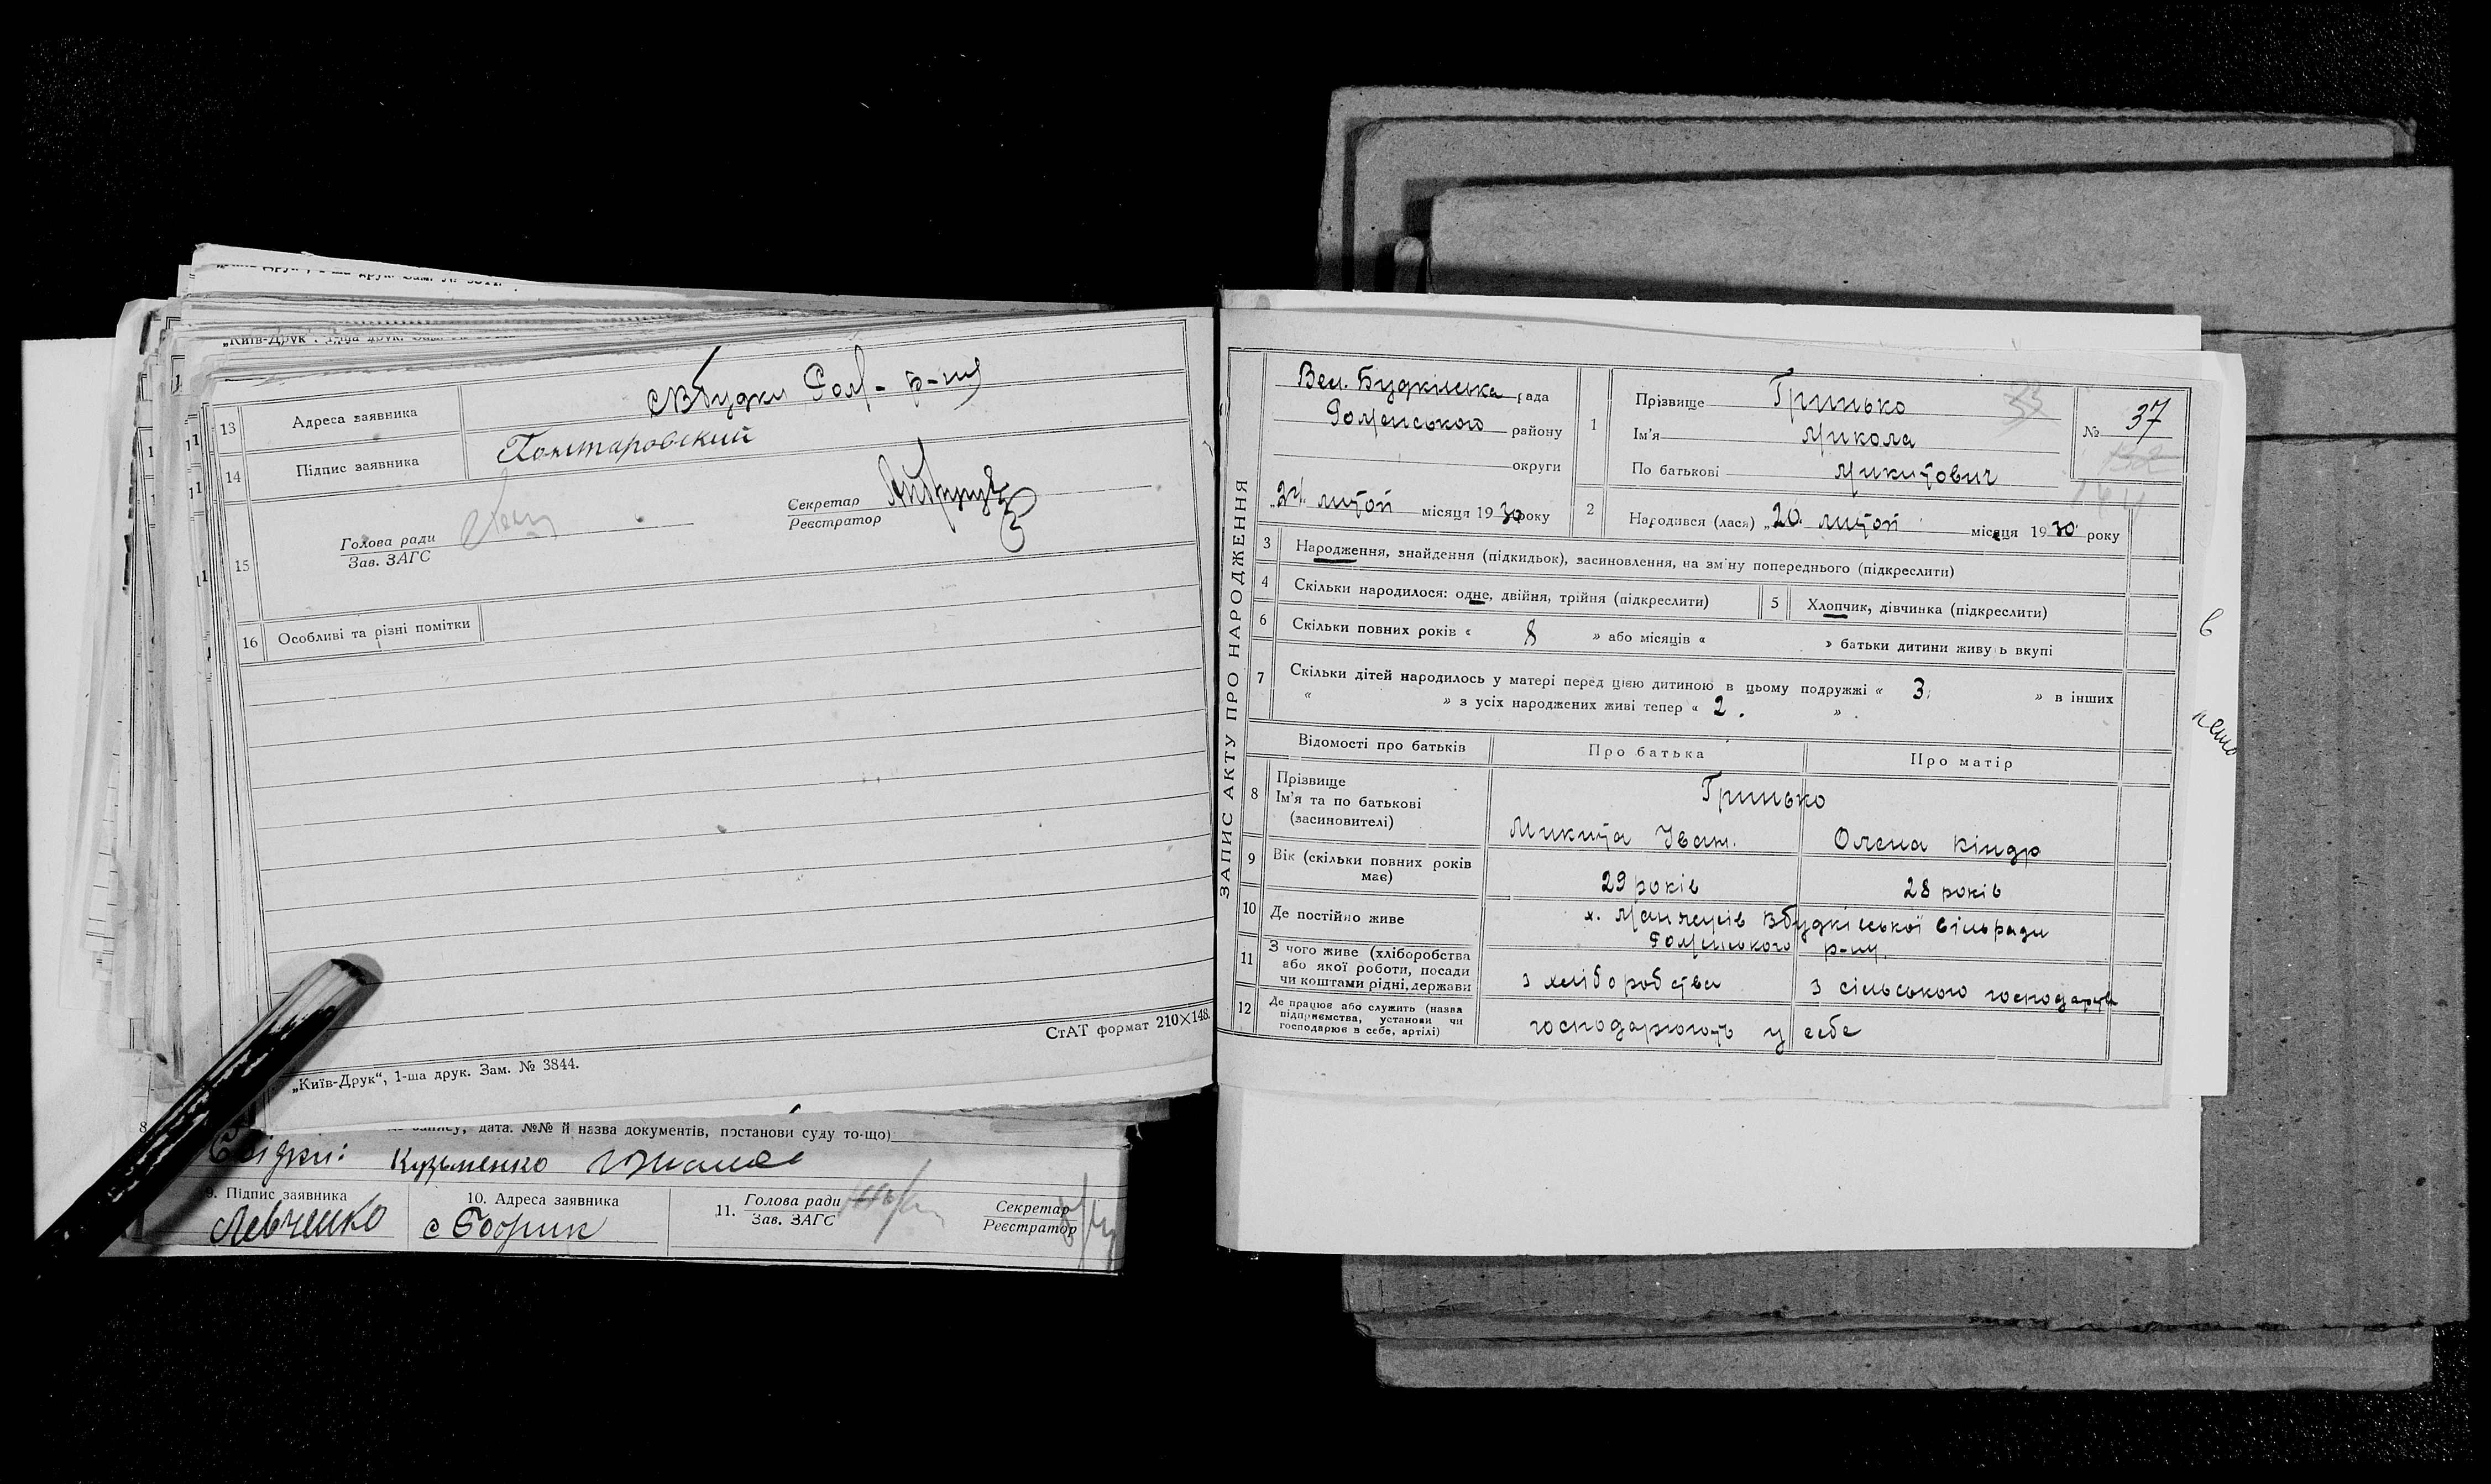 „Київ-Друк“, 1-ша друк. Зам. №
13 Адреса заявника с Вбудки Ром- р-ну
14 Підпис заявника Гонтаровский
15 Голова ради
Зав. ЗАГС
Секретар
Реєстратор
16 Особливі та різні помітки
СтАТ формат 210×148.
„Київ-Друк“, 1-ша друк. Зам. № 3844.
дата. №№ й назва документів, постанови суду то-що)
Свідки: Кузьменко
9. Підпис заявника
Левченко
10. Адреса заявника
с Бобрик
11. Голова ради
Зав. ЗАГС
Секретар
Реєстратор
ЗАПИС АКТУ ПРО НАРОДЖЕННЯ
Вел. Будківська рада
Роменського району
округи
„24. лютой місяця 1930 року
1 Прізвище Гринько 33
Ім'я Микола
По батькові Микитович
№ 37
132
2 Народився (лася) „20. лютой місяця 1930 року
3 Народження, знайдення (підкидьок), засиновлення, на зміну попереднього (підкреслити)
4 Скільки народилося: одне, двійня, трійня (підкреслити) 5 Хлопчик, дівчинка (підкреслити)
6 Скільки повних років « 8 » або місяців « » батьки дитини живуть вкупі
7 Скільки дітей народилось у матері перед цією дитиною в цьому подружжі « 3. » в інших
« » з усіх народжених живі тепер « 2. ».
Відомості про батьків Про батька Про матір
8 Прізвище
Ім'я та по батькові
(засиновителі)
Гринько
Микита Іван. Олена Кіндр
9 Вік (скільки повних років має) 29 років 28 років
10 Де постійно живе х. Вбудківської сільради
Роменського р-ну.
11 З чого живе (хліборобства
або якої роботи, посади
чи коштами рідні, держави
з хліборобства з сільського господарств
12 Де працює або служить (назва
підприємства, установи чи
господарює в себе, артілі)
господарюють у себе